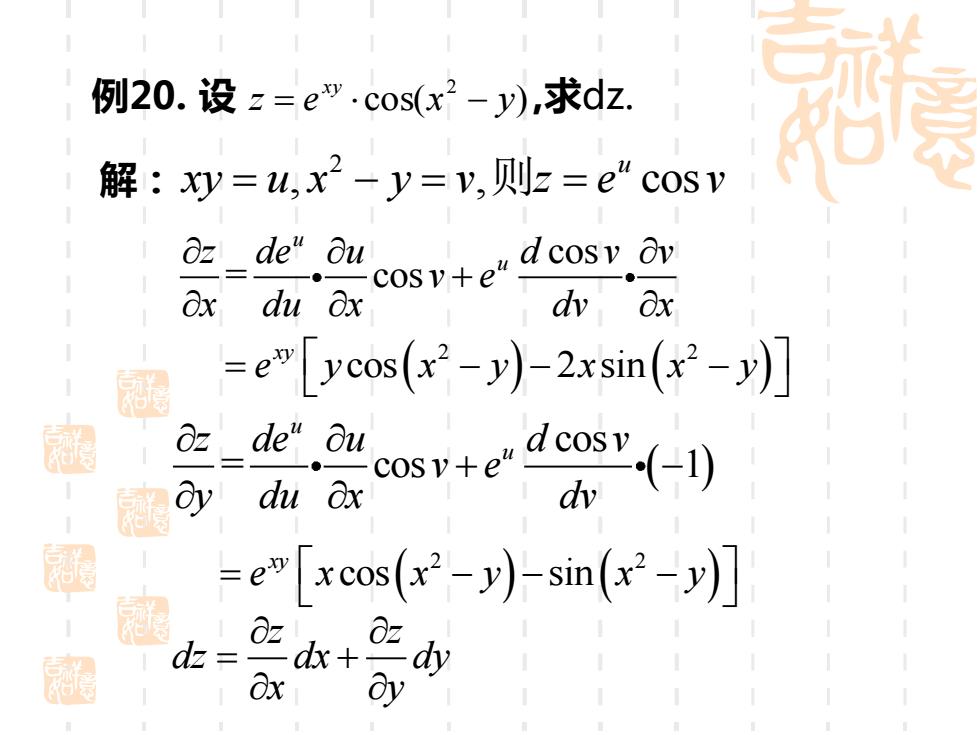 例20. 设 z = e^{xy} · cos(x² − y),求dz.
解：xy = u, x² − y = v, 则z = e^u cos v
∂z/∂x = de^u/du • ∂u/∂x cos v + e^u d cos v/dv • ∂v/∂x
= e^{xy} [y cos(x² − y) − 2x sin(x² − y)]
∂z/∂y = de^u/du • ∂u/∂x cos v + e^u d cos v/dv • (−1)
= e^{xy} [x cos(x² − y) − sin(x² − y)]
dz = ∂z/∂x dx + ∂z/∂y dy
吉祥
如意